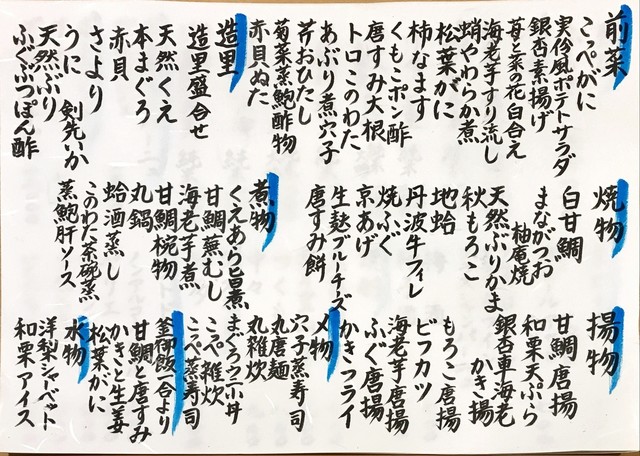 前菜
こっぺがに
実伶風ポテトサラダ
銀杏素揚げ
苺と菜の花白合え
海老芋すり流し
蛸やわらか煮
松葉がに
柿なます
くもこポン酢
唐すみ大根
トロこのわた
あぶり煮穴子
芹おひたし
菊菜蒸鮑酢物
赤貝ぬた
造里
造里盛合せ
天然くえ
本まぐろ
赤貝
さより
うに 剣先いか
天然ぶり
ふぐぶつぽん酢
焼物
白甘鯛
まながつお
柚庵焼
天然ぶりかま
秋もろこ
地蛤
丹波牛フィレ
焼ふぐ
京あげ
生麩ブルーチーズ
唐すみ餅
煮物
くえあら旨煮
甘鯛蕪むし
海老芋煮
甘鯛椀物
丸鍋
蛤酒蒸し
このわた茶碗蒸
蒸鮑肝ソース
揚物
甘鯛唐揚
和栗天ぷら
銀杏車海老
かき揚
もろこ唐揚
ビフカツ
海老芋唐揚
ふぐ唐揚
かきフライ
〆物
穴子蒸寿司
丸唐麺
丸雑炊
まぐろウニ小丼
こっぺ雑炊
こっぺ蒸寿司
釜御飯二合より
甘鯛と唐すみ
かきと生姜
松葉がに
水物
洋梨シャーベット
和栗アイス